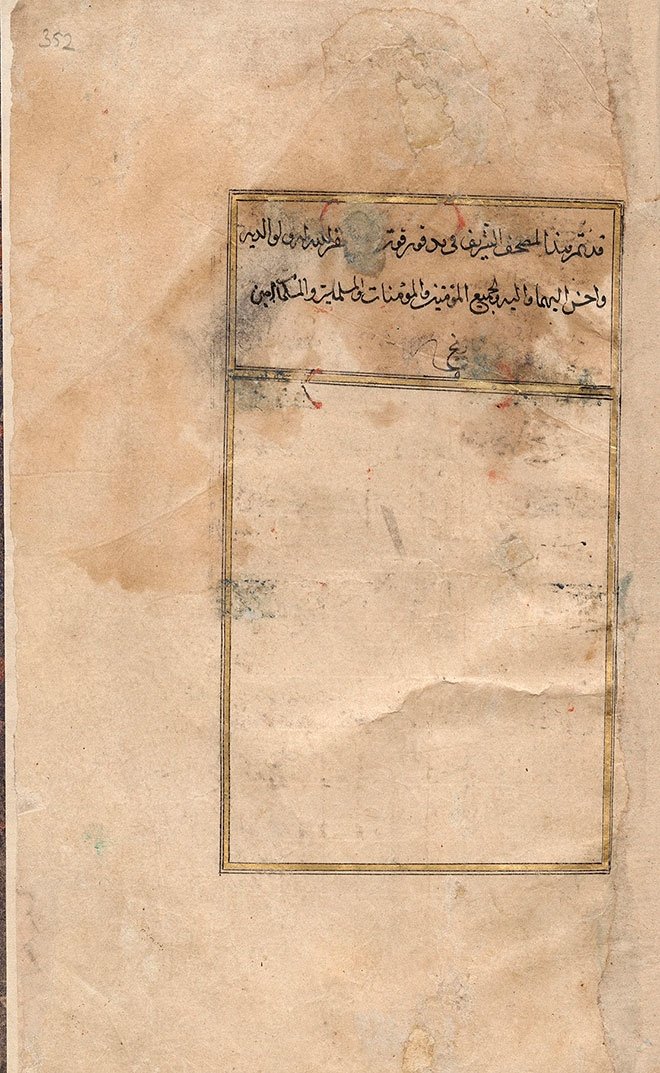 352
قد تم هذا المصحف الشريف في يد غفر الله له ولوالديه
واحسن اليهما واليه ولجميع المؤمنين والمؤمنات والمسلمين والمسلمات امين